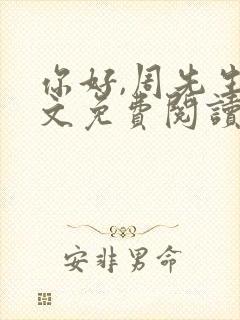 你好,周先生
文免費閱讀
安非男命